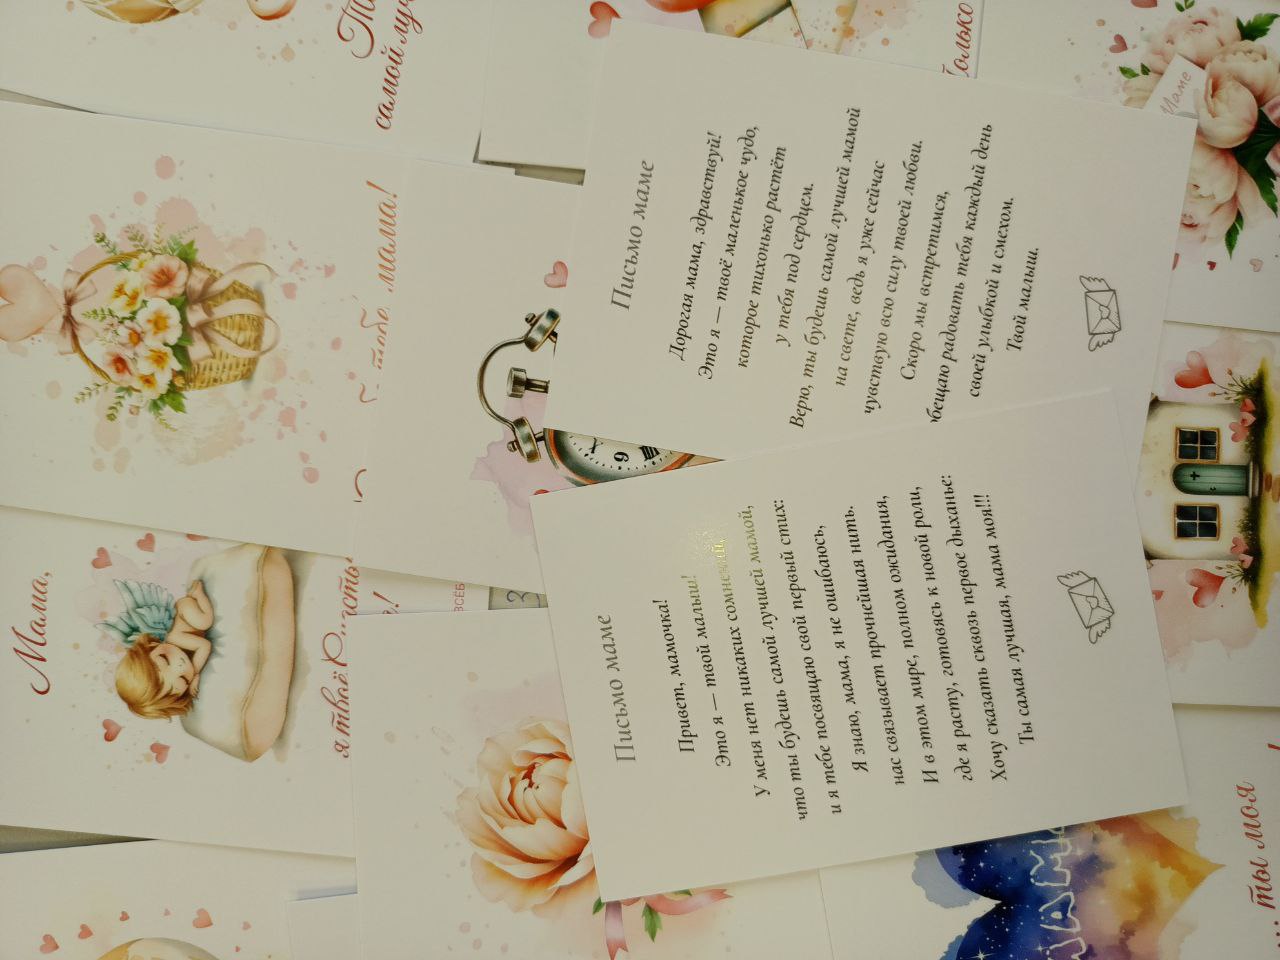 Письмо маме
Дорогая мама, здравствуй!
Это я — твоё маленькое чудо,
которое тихонько растёт
у тебя под сердцем.
Верю, ты будешь самой лучшей мамой
на свете, ведь я уже сейчас
чувствую всю силу твоей любви.
Скоро мы встретимся,
бещаю радовать тебя каждый день
своей улыбкой и смехом.
Твой малыш.
Письмо маме
Привет, мамочка!
Это я — твой малыш!
У меня нет никаких сомнений,
что ты будешь самой лучшей мамой,
и я тебе посвящаю свой первый стих:
Я знаю, мама, я не ошибаюсь,
нас связывает прочнейшая нить.
И в этом мире, полном ожидания,
где я расту, готовясь к новой роли,
Хочу сказать сквозь первое дыханье:
Ты самая лучшая, мама моя!!!
самой
мама!
Мама,
я твоё
Только
Маме
9
ВСЁ
ты моя